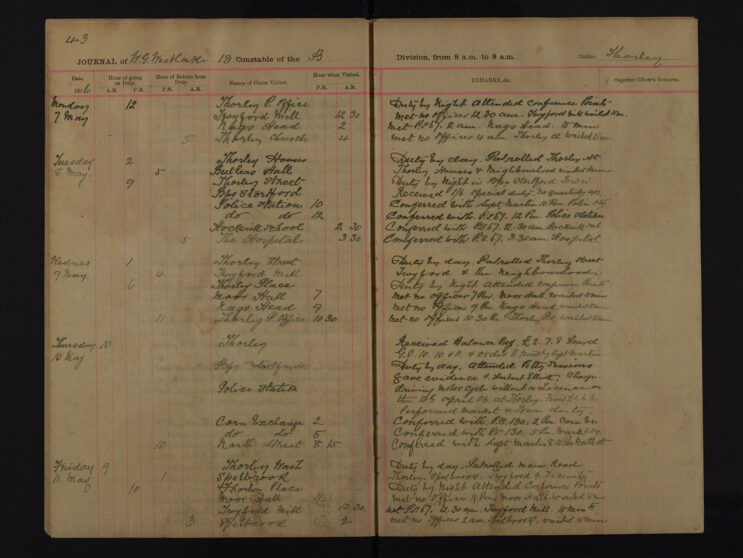 43
JOURNAL of W.G. Westlake 13 Constable of the B Division, from 8 a.m. to 8 a.m. Station Thorley
Date. Hour of going on Duty. Hour of Return from Duty. Names of Places Visited. Hour when Visited. REMARKS, &c. Superior Officer's Remarks.
1906 A.M. P.M. A.M. P.M. P.M. A.M.
Monday 12 Thorley P. Office Duty by Night Attended Conference Points
7 May Twyford Mill 12 30 met no officer 12.30 am. Twyford Mill waited
Nags Head 2 met PS 67. 2 am. Nags Head. 15 min
5 Thorley Church 4 met no officer 4 am Thorley Ch. waited
Tuesday 2 Thorley Houses Duty by day. Patrolled Thorley St
8 May. 5 Butlers Hall Thorley Houses & Neighbourhood
9 Thorley Street Duty by Night in Bps Stortford
Bps Stortford Received special duty
Police Station 10 Conferred with Supt Martin 10 Pm. Police Stn
do do 12 Conferred with PS 67. 12 Pm. Police Station
Hockerill School 2 30 Conferred with PS 67. 2.30 am Hockerill
5 The Hospital 3 30 Conferred with PS 67. 3.30 am Hospital
Wednes 1 Thorley Street Duty by day. Patrolled Thorley Street
9 May 4 Twyford Mill Twyford & the Neighbourhood
6 Thorley Place Duty by Night attended conference Points
Moor Hall 7 met no officer 7 Pm. Moor Hall waited
Nags Head 9 met no officer 9 Pm Nags Head
11 Thorley P. Office 10 30 met no officer 10 30 Pm Thorley P.O. waited
Thursday 10 Thorley Received Balance
10 May G.O. 10. 10 & 11. & order
Bps Stortford Duty by day. Attended Petty Sessions
gave evidence Charge
Police Station driving Motor Cycle without a Licence on
the 16th April 06. at Thorley.
Performed Market & Town duty
Corn Exchange 2 Conferred with P.S. 130. 2 Pm. Corn Ex
do do 5 Conferred with PS 130. 5 Pm.
10 North Street 8 15 Conferred with Supt Martin 8 15 Pm North St
Friday 9 Thorley Wash Duty by day. Patrolled main Road
11 May 1 Spelbrook Thorley. Spelbrook. Twyford & Vicinity
10 Thorley Place Duty by Night Attended Conference Points
Moor Hall 11 met no officer 11 Pm Moor Hall waited
Twyford Mill 12 30 met PS 67. 12.30 am. Twyford Mill. 15 min
3 Spelbrook 2 met no officer 2 am Spelbrook. waited 15 min